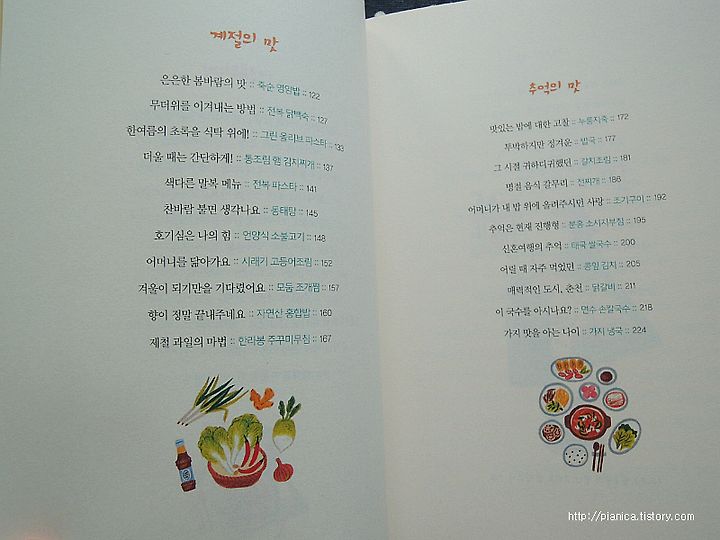 계절의 맛
은은한 봄바람의 맛 :: 죽순 영양밥 :: 122
무더위를 이겨내는 방법 :: 전복 닭백숙 :: 127
한여름의 초록을 식탁 위에! :: 그린 올리브 파스타 :: 133
더울 때는 간단하게! :: 통조림 햄 김치찌개 :: 137
색다른 말복 메뉴 :: 전복 파스타 :: 141
찬바람 불면 생각나요 :: 동태탕 :: 145
호기심은 나의 힘 :: 언양식 소불고기 :: 148
어머니를 닮아가요 :: 시래기 고등어조림 :: 152
겨울이 되기만을 기다렸어요 :: 모둠 조개찜 :: 157
향이 정말 끝내주네요 :: 자연산 홍합밥 :: 160
제철 과일의 마법 :: 한라봉 주꾸미무침 :: 167
추억의 맛
맛있는 밥에 대한 고찰 :: 누룽지죽 :: 172
투박하지만 정겨운 :: 밥국 :: 177
그 시절 귀하디귀했던 :: 갈치조림 :: 181
명절 음식 갈무리 :: 전찌개 :: 186
어머니가 내 밥 위에 올려주시던 사랑 :: 조기구이 :: 192
추억은 현재 진행형 :: 분홍 소시지부침 :: 195
신혼여행의 추억 :: 태국 쌀국수 :: 200
어릴 때 자주 먹었던 :: 콩잎 김치 :: 205
매력적인 도시, 춘천 :: 닭갈비 :: 211
이 국수를 아시나요? :: 면수 손칼국수 :: 218
가지 맛을 아는 나이 :: 가지 냉국 :: 224
http://pianica.tistory.com